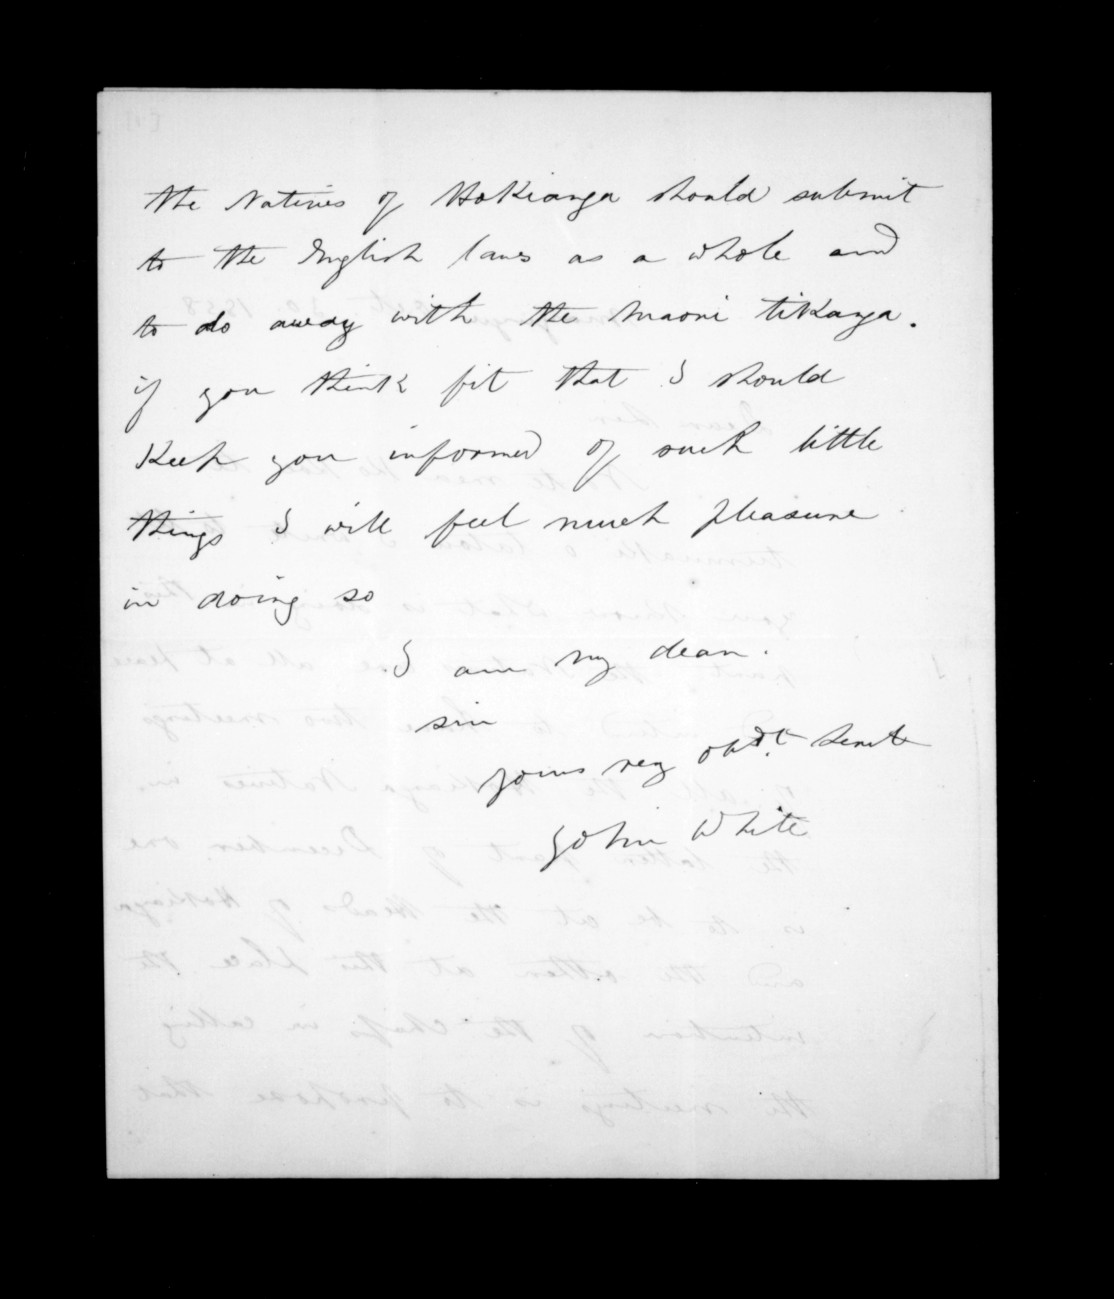 the Natives of Hokianga should submit
to the English laws as a whole and
to do away with the Maori tikanga.
if you think fit that I should
Keep you informed of such little
things I will feel much pleasure
in doing so
I am my dear.
sir
yours very obdt. servt
John White